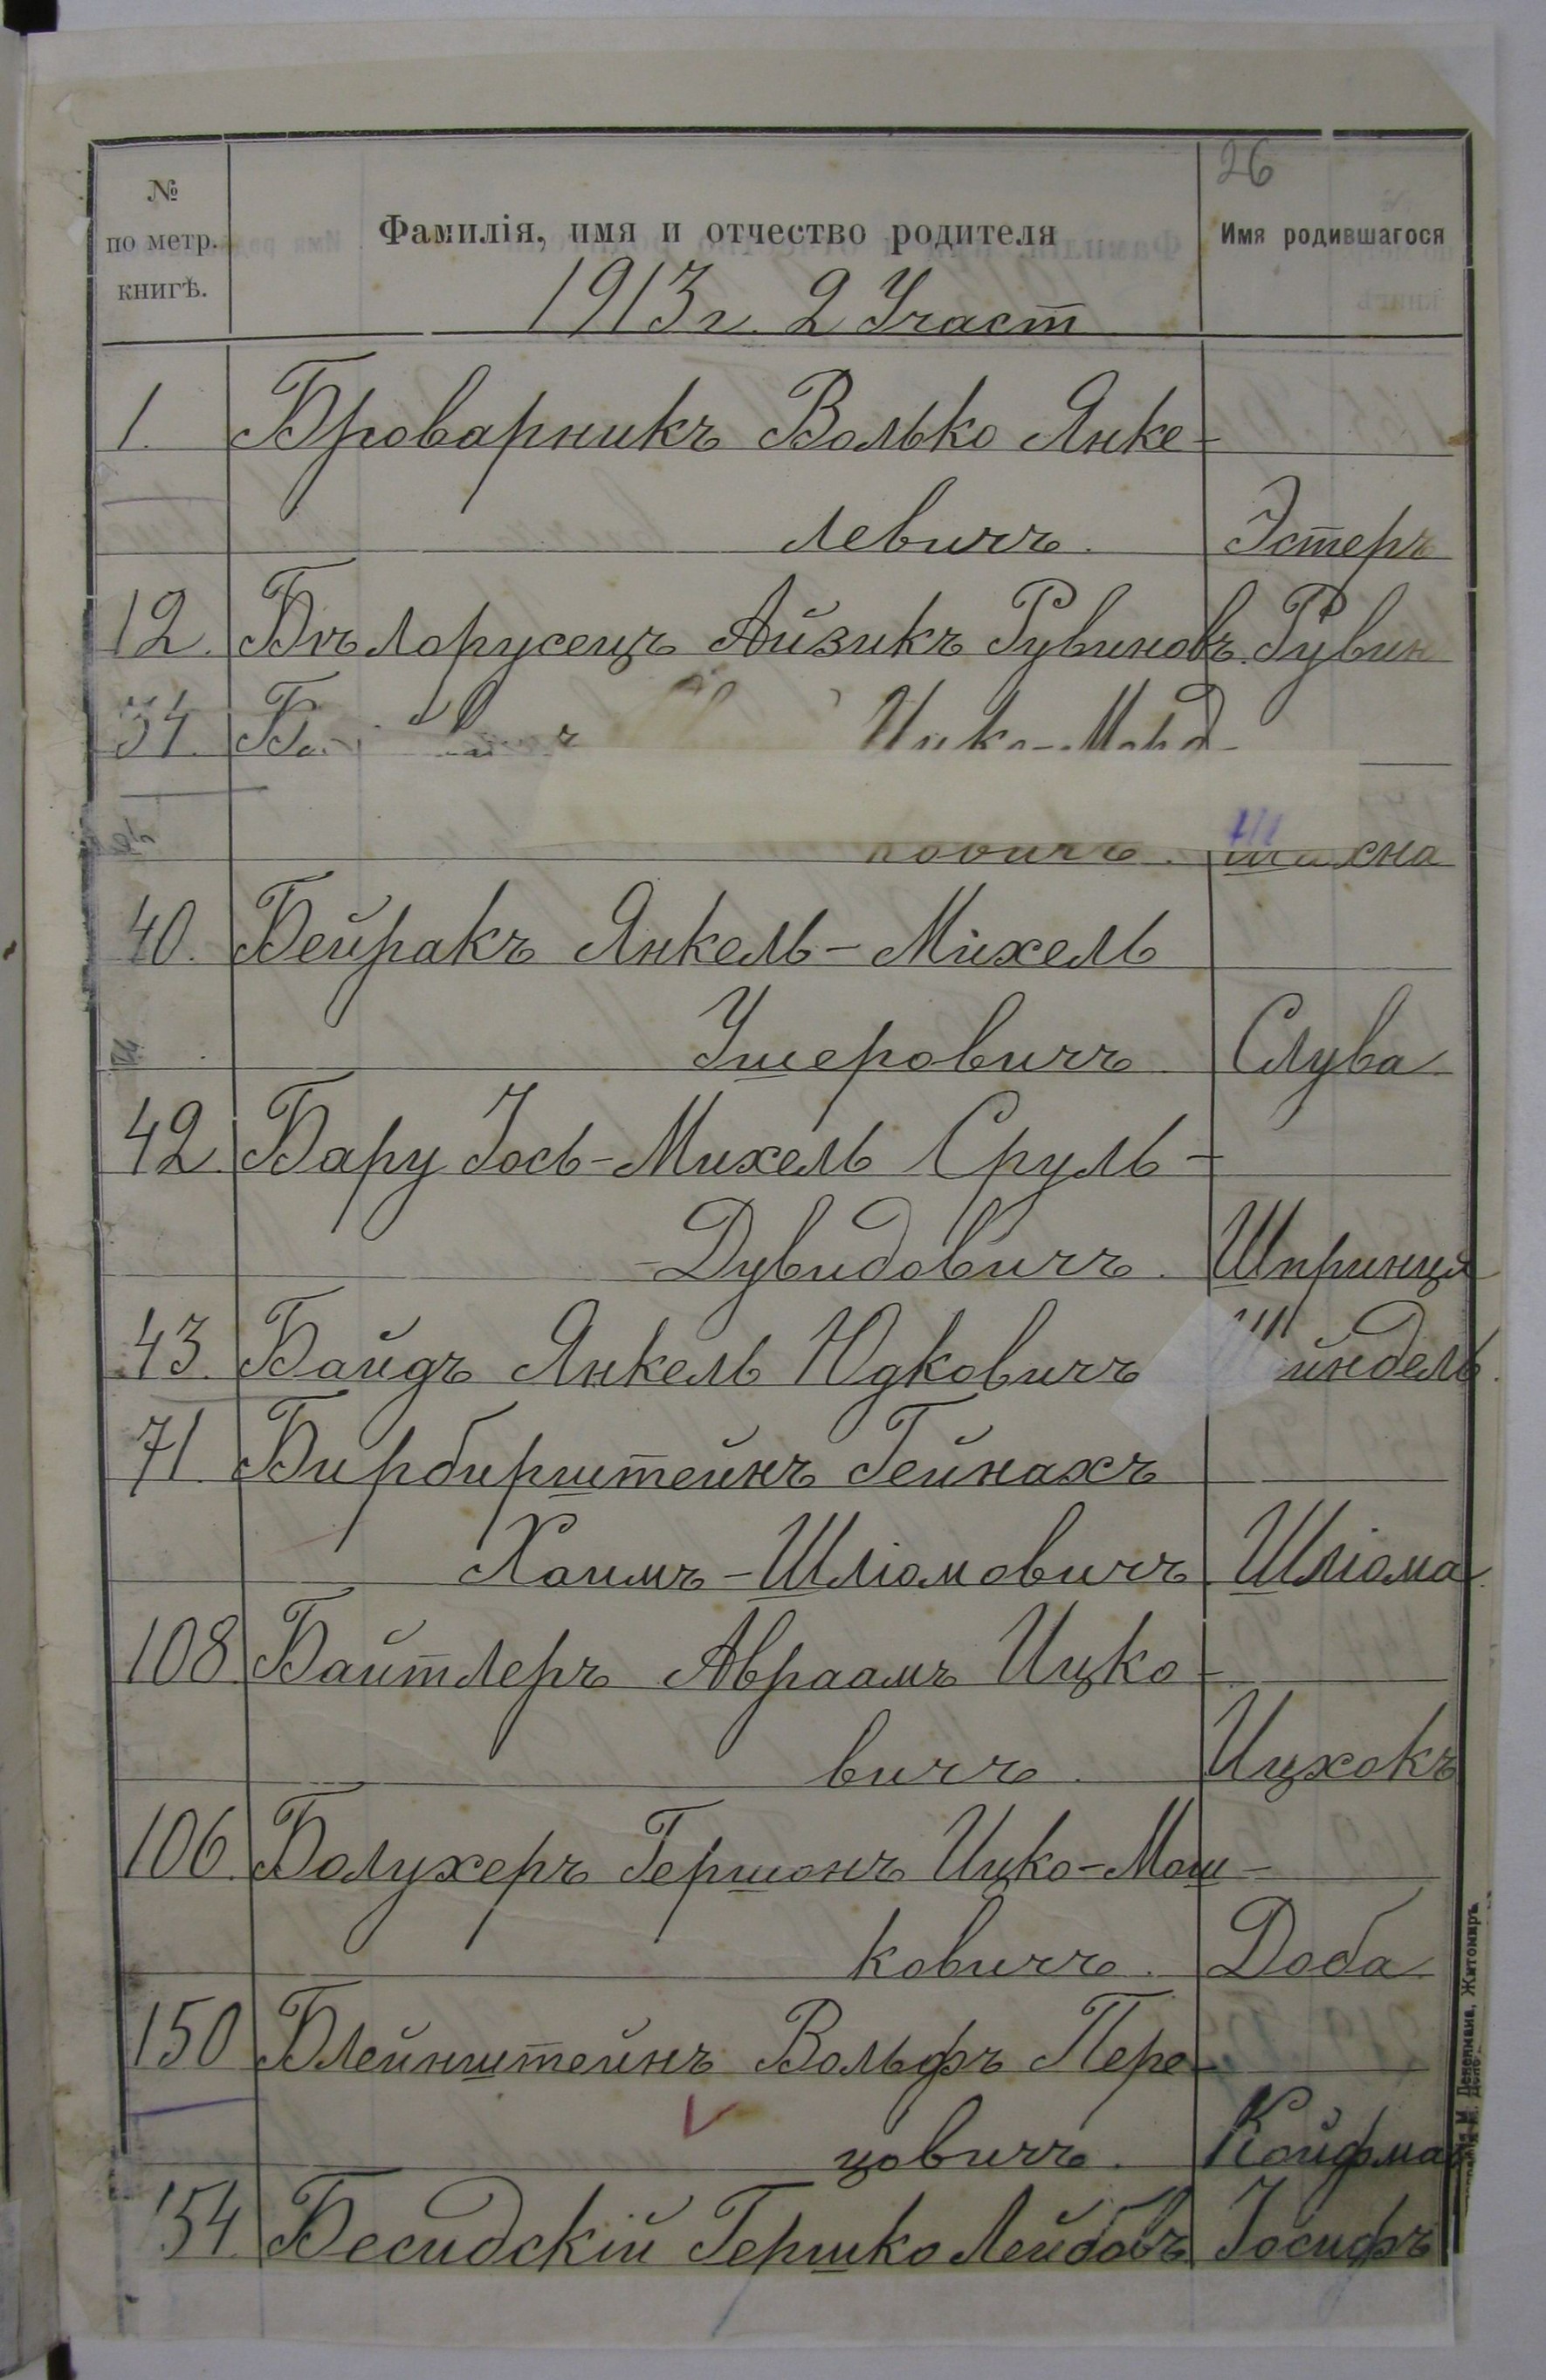 26
№
по метр.
книгѣ.
Фамилія, имя и отчество родителя
Имя родившагося
1913 г. 2 Участ
1. Броварникъ Волько Янке-
левичъ. Эстеръ
12. Бѣлорусецъ Айзикъ Рувиновъ. Рувин
34. Ицко-Морд-
ковичъ.
40. Бейракъ Янкель-Михель
Ушеровичъ. Слува
42 Бару Іось-Михель Сруль-
-Дувидовичъ. Шпринця
43. Байдъ Янкель Юдковичъ индель.
71. Бирбирштейнъ Гейнахъ
Хаимъ-Шліомовичъ. Шліома
108. Байтлеръ Авраамъ Ицко-
вичъ. Ицхокъ
106. Болухеръ Гершонъ Ицко-Мош-
ковичъ. Доба
150 Блейнштейнъ Вольфъ Пере-
цовичъ. Койфман
154. Бесидскій Гершко Лейбовъ Іосифъ
Денемана, Житомиръ